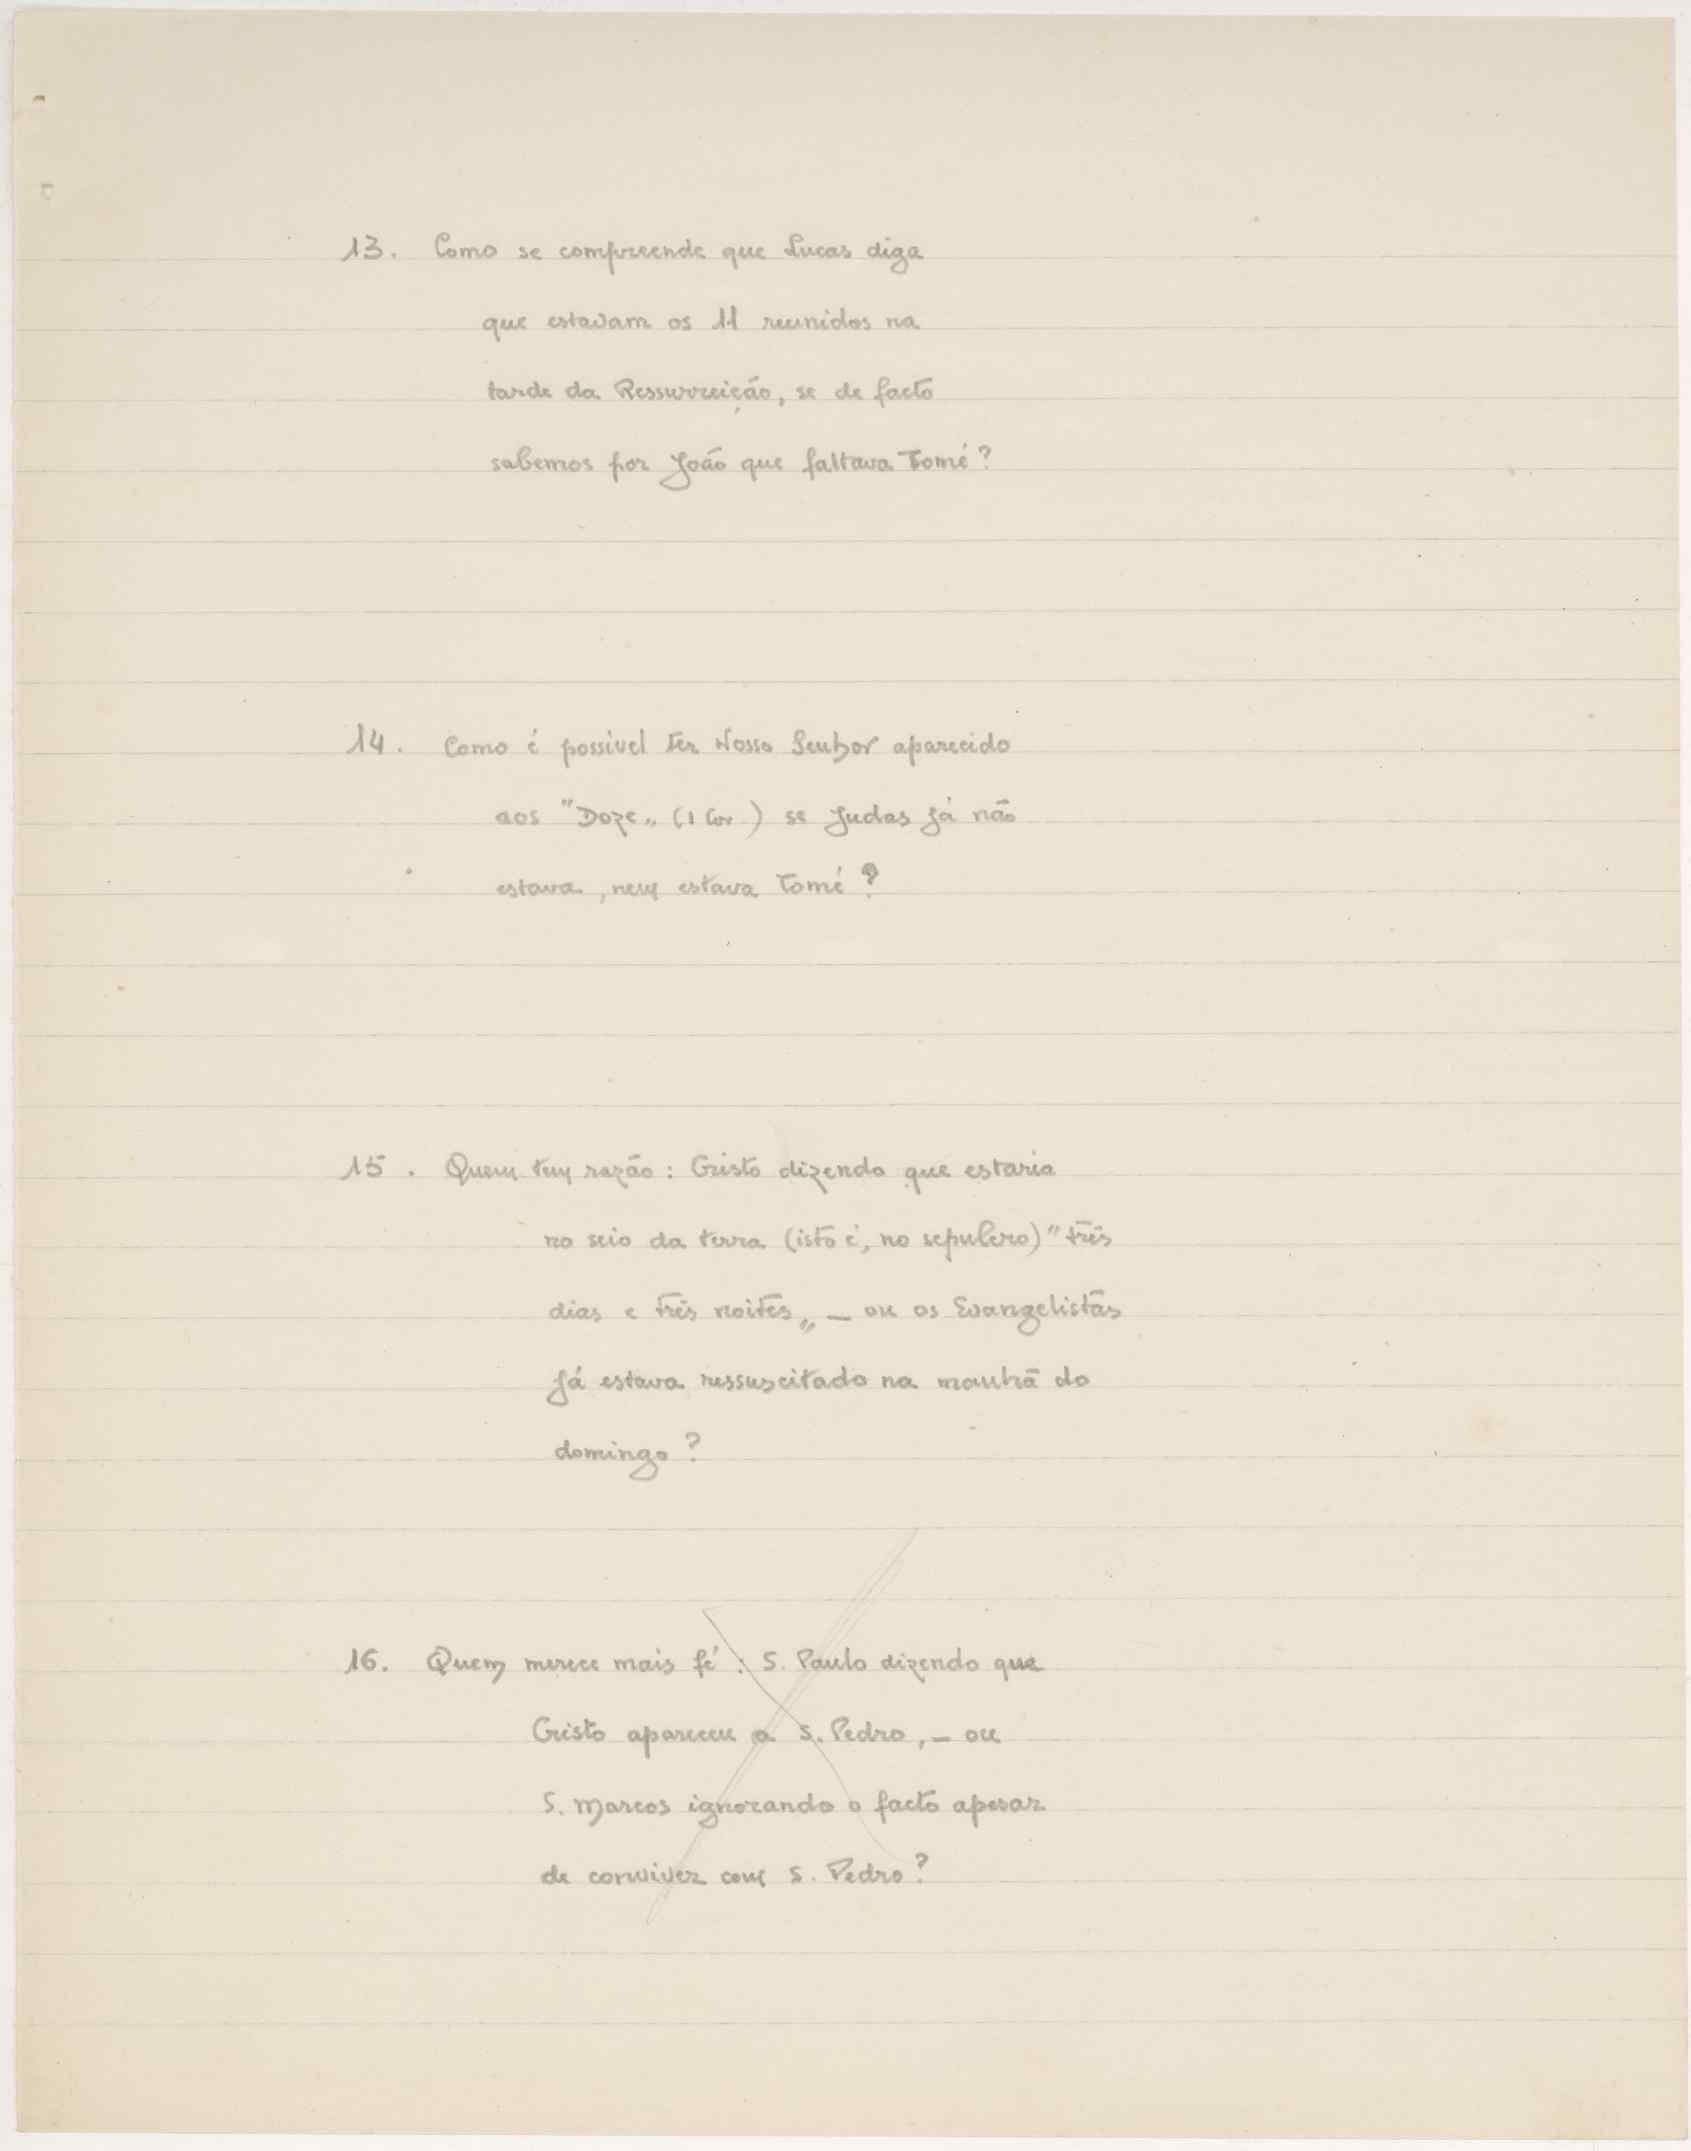 13. Como se compreende que Lucas diga
que estavam os 11 reunidos na
tarde da Ressurreição, se de facto
sabemos por João que faltava Tomé?
14. Como é possível ter Nosso Senhor aparecido
aos "Doze„ (1 Cor.) se Judas já não
estava, nem estava Tomé?
15. Quem tem razão: Cristo dizendo que estaria
no seio da terra (isto é, no sepulcro) "três
dias e três noites„ — ou os Evangelistas
já estava ressuscitado na manhã do
domingo?
16. Quem merece mais fé: S. Paulo dizendo que
Cristo apareceu a S. Pedro, — ou
S. Marcos ignorando o facto apesar
de conviver com S. Pedro?